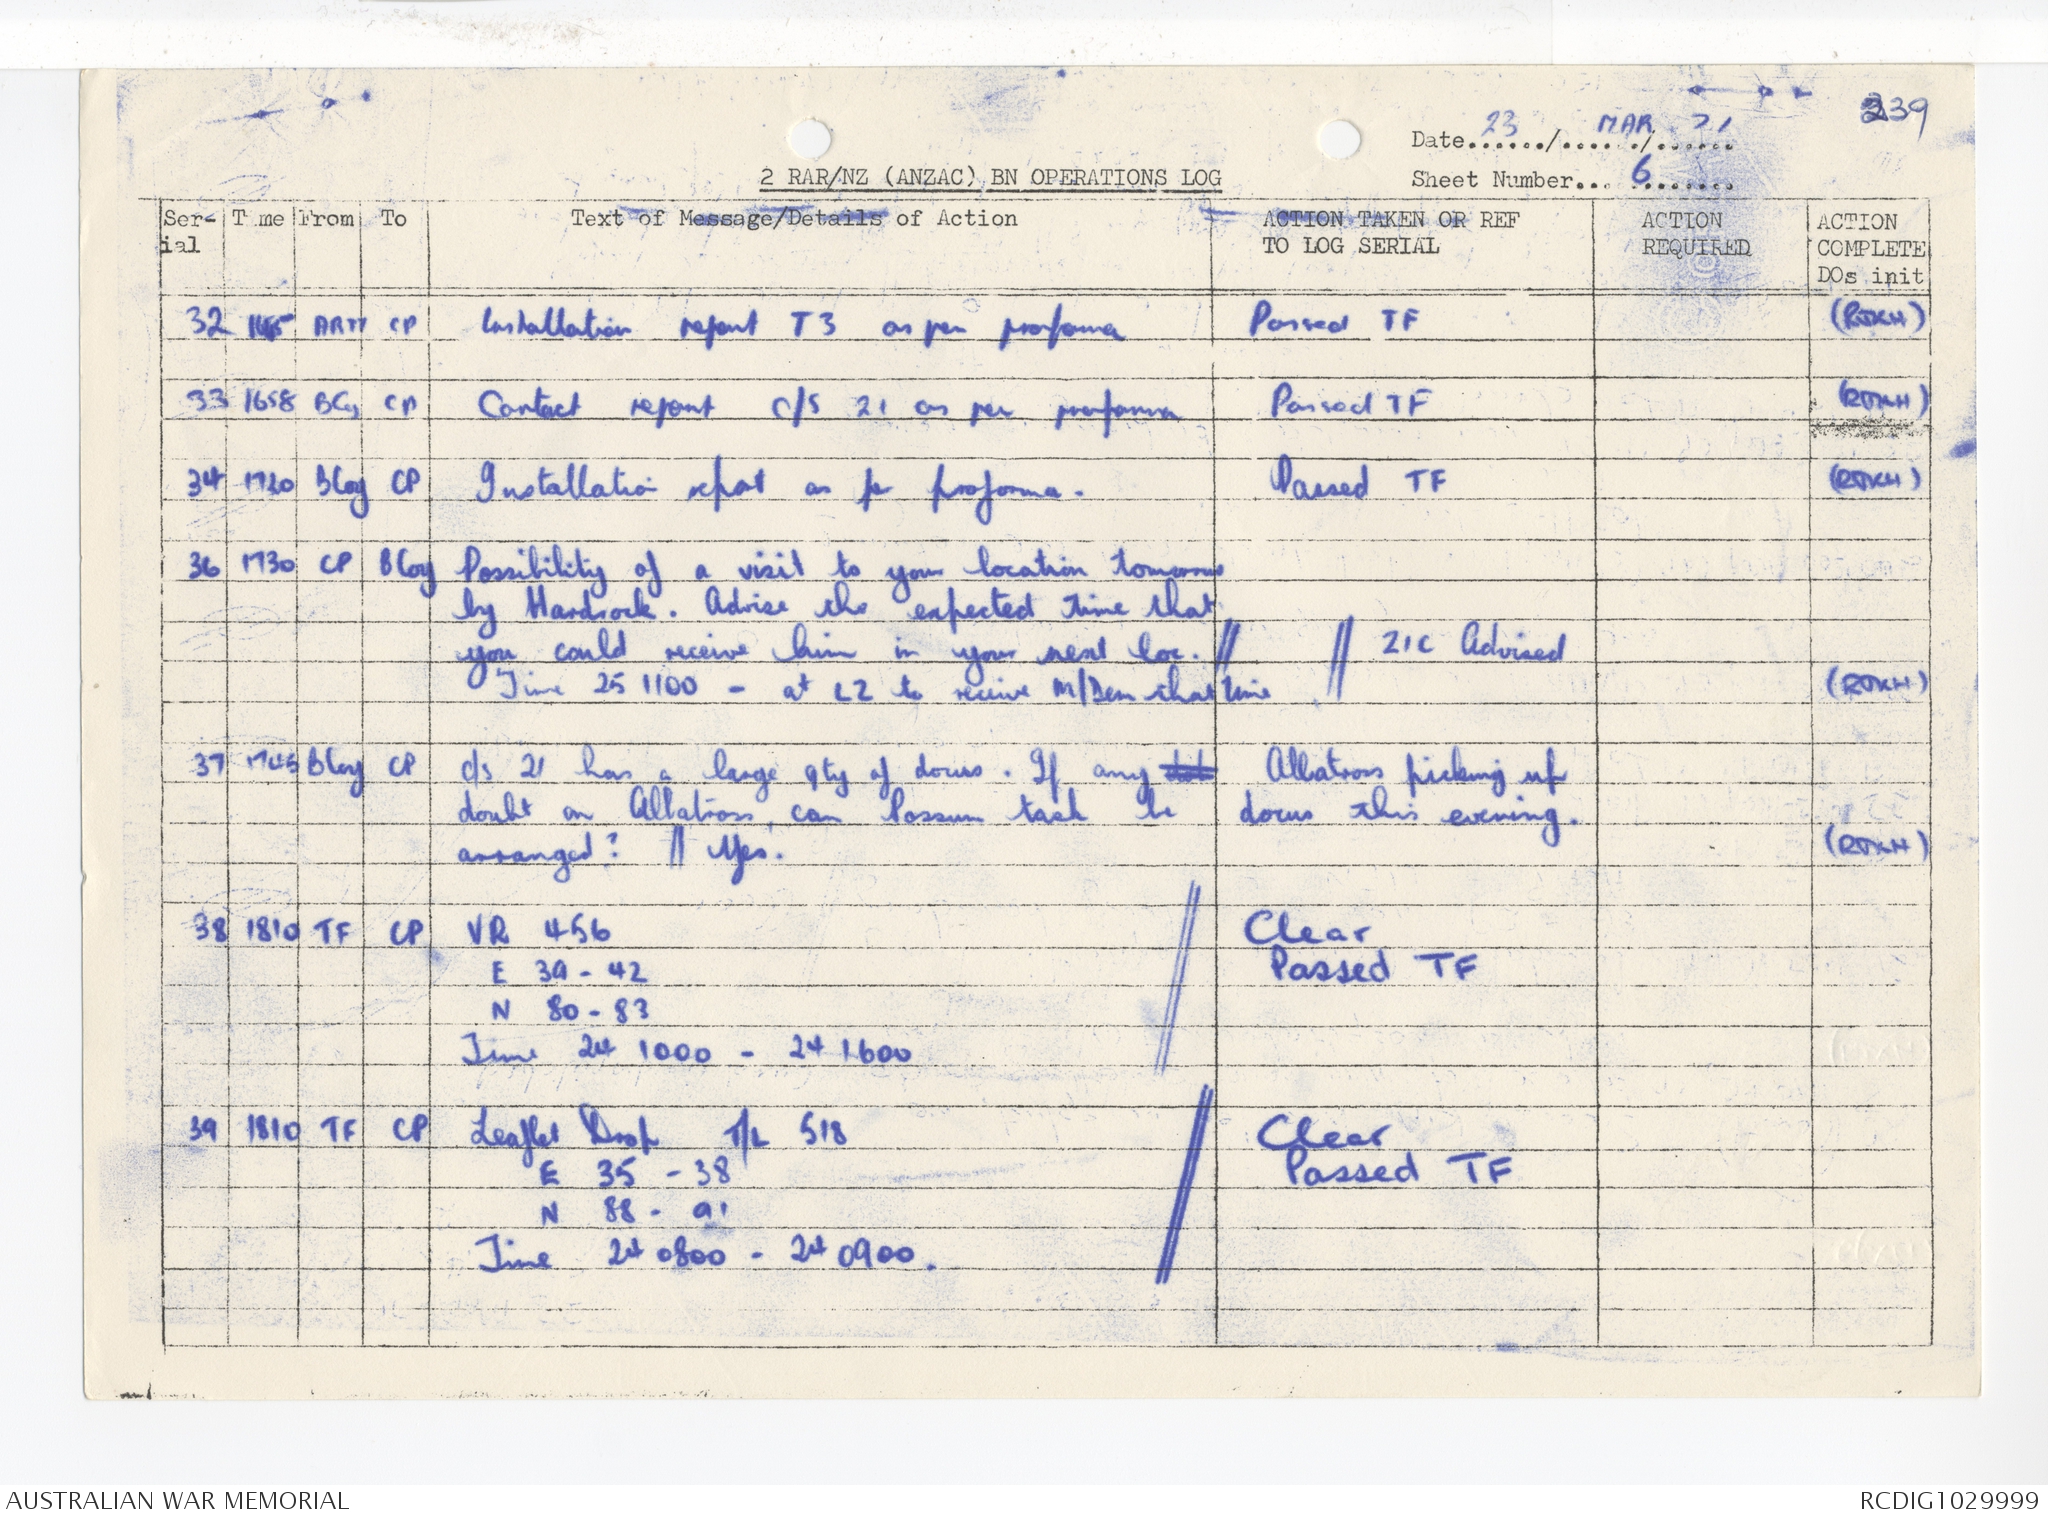 239
Date 23 / MAR / 71
2 RAR/NZ (ANZAC) BN OPERATIONS LOG
Sheet Number 6
Ser-ial Time From To Text of Message/Details of Action ACTION TAKEN OR REF TO LOG SERIAL ACTION REQUIRED ACTION COMPLETE DOs init
32 ARTY CP Installation report T3 as per proforma Passed TF (RJKH)
33 1658 BCoy CP Contact report c/s 21 as per proforma Passed TF (RJKH)
34 1720 BCoy CP Installation report as per proforma. Passed TF (RJKH)
36 1730 CP BCoy Possibility of a visit to your location tomorrow
by Hardrock. Advise the expected time that
you could receive him in your next loc. // // 2IC Advised
Time 25 1100 - at LZ to receive M/Dem that time (RJKH)
37 1745 BCoy CP c/s 21 has a large qty of docus. If any Albatross picking up
doubt on Albatross, can Possum task be docus this evening.
arranged? // Yes. (RJKH)
38 1810 TF CP VR 456 // Clear
E 39 - 42 Passed TF
N 80 - 83
Time 24 1000 - 24 1600
39 1810 TF CP Leaflet Drop T/L 518 // Clear
E 35 - 38 Passed TF
N 88 - 91
Time 24 0800 - 24 0900.
AUSTRALIAN WAR MEMORIAL
RCDIG1029999